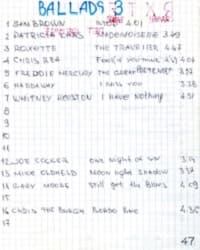 BALLADS 3
1 SAM BROWN STOP 4.01
2 PATRICIA KAAS MADEMOISELLE 3.49
3 ROXETTE THE TRAVELLER 4.42
4 CHRIS REA
5 FREDDIE MERCURY THE GREAT PRETENDER 3.27
6 HADDAWAY I miss you 3.28
7 WHITNEY HOUSTON I HAVE Nothing 4.51
8
9
10
11
12 JOE COCKER one night of sin 3.14
13 MIKE OLDFIELD Moon light Shadow 3.37
14 GARY MOORE Still got the Blues 4.09
15
16 CHRIS DE BURGH 4.35
17
47